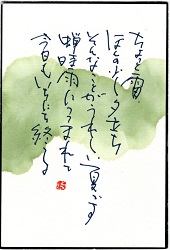 ちょっと雷
ほんの少し夕立ち
そんなことがうれしい夏です
蝉時雨にうまれて
今日もいちにち終る